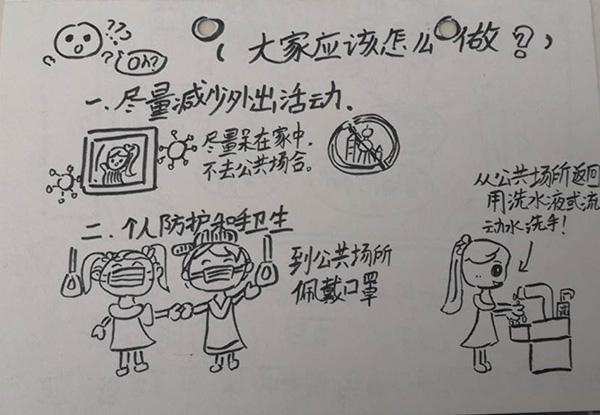 ???
Oh?
（大家应该怎么做？）
一、尽量减少外出活动.
尽量呆在家中，
不去公共场合。
二、个人防护和手卫生
到公共场所
佩戴口罩
从公共场所返回
用洗水液或流
动水洗手！